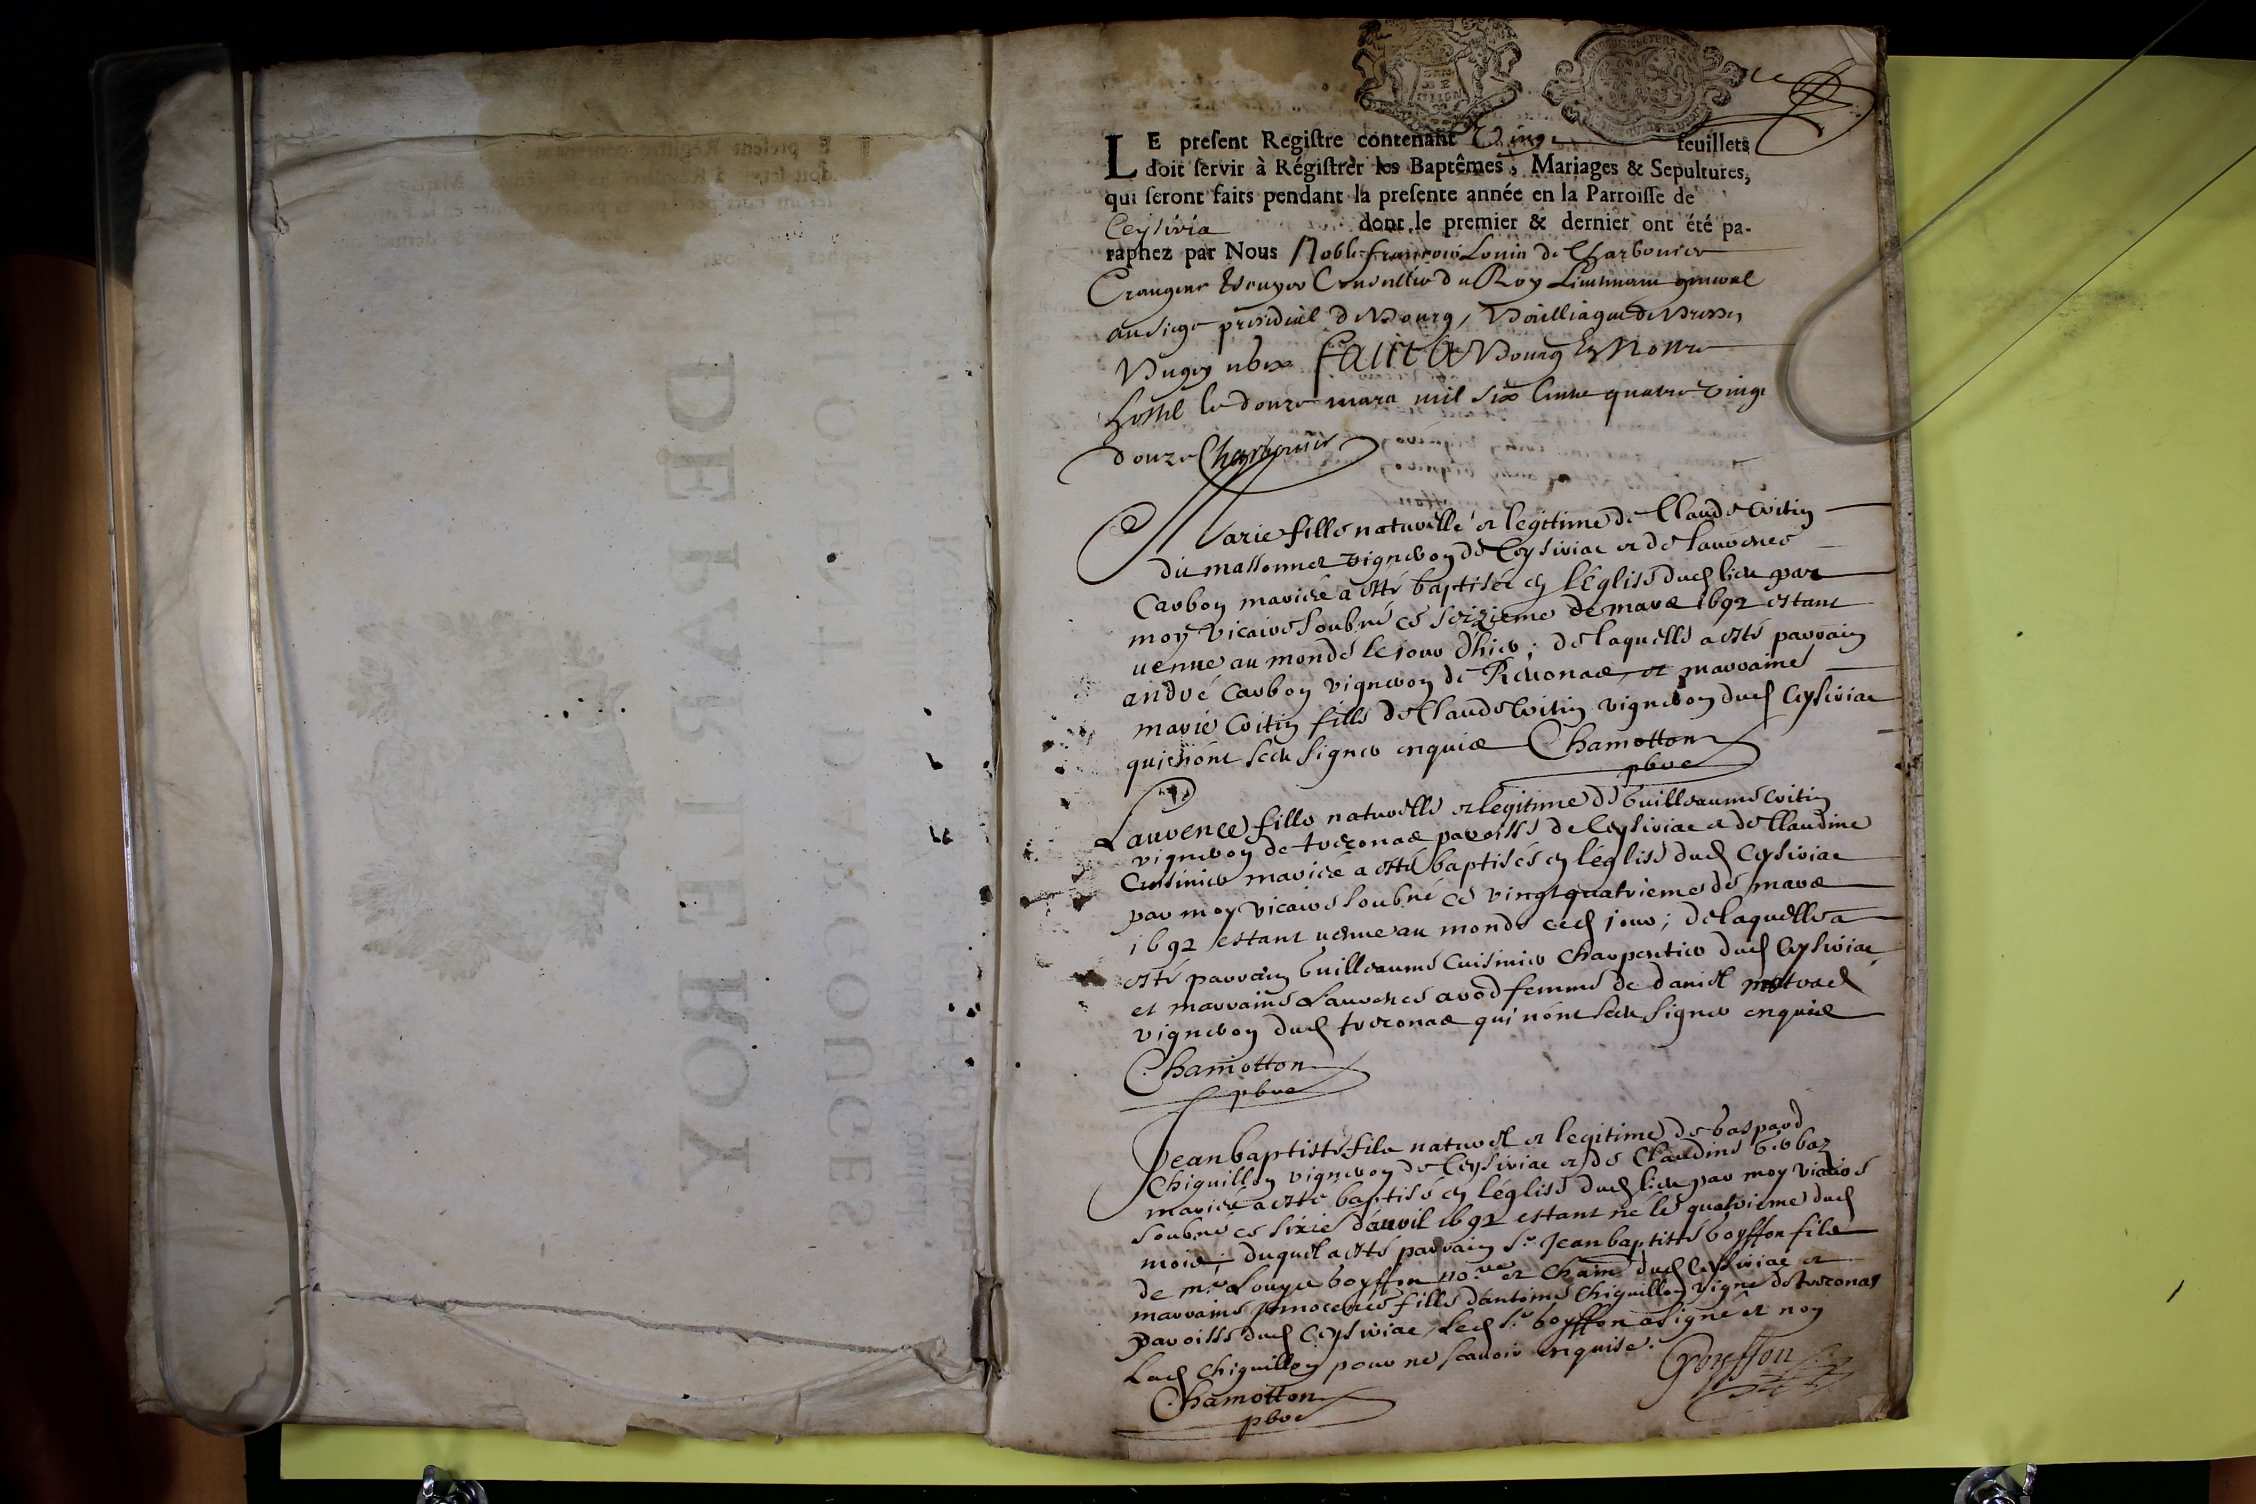 LE present Registre contenant Vingt feuillets
doit servir à Régistrer les Baptêmes, Mariages & Sepultures,
qui seront faits pendant la presente année en la Parroisse de
Ceysiria dont le premier & dernier ont été pa-
raphez par Nous Noble francois Louis de Charbonier
Crangeac Escuyer Conseillier du Roy Lieutenant general
au siege presidial de Bourg, Bailliage de Bresse,
Bugey Fait a Bourg En Nostre
hostel le douze mars mil six Cents quatre vingt
douze Charbonier
Marie fille naturelle et legitime de Claude Coitin
du massonnet vigneron de Ceysiriat et de Laurence
Carbon mariée a esté baptisée en l'Eglise dud lieu par
moy vicaire soubné ce seizieme de mars 1692 estant
venue au monde le jour d'hier; de laquelle a esté parrain
andré Carbon vigneron de Revonas et marraine
marie Coitin fille de Claude Coitin vigneron dud Ceysiriat
qui n'ont sceu signer enquis Chamotton
pbre
Laurence fille naturelle et legitime de Guilleaume Coitin
vigneron de treconas paroisse de Ceysiriat et de Claudine
Cuisinier mariée a esté baptisée en l'église dud Ceysiriat
par moy vicaire soubné ce vingt quatrieme de mars
1692 estant venue au monde ced jour; de laquelle a
esté parrain Guilleaume Cuisinier charpentier dud Ceysiriat
et marraine Laurence avod femme de daniel
vigneron dud treconas qui n'ont sceu signer enquis
Chamotton
pbre
Jean baptiste fils naturel et legitime de Gaspard
Chiquillon vigneron de Ceysiriat et de Claudine Gerbaz
mariée a esté baptisé en l'église dud lieu par moy vicaire
soubné ce sixie d'avril 1692 estant né le quatrieme dud
mois; duquel a esté parrain Sr Jean baptiste Goyffon fils
de mre Louys Goyffon no.re et cham dud Ceysiriat et
marraine Innocence fille d'antoine Chiquillon vigne de treconas
paroisse dud Ceysiriat, led Sr Goyffon a signé et non
lad Chiquillon pour ne scavoir enquise. Goyffon
Chamotton
pbre